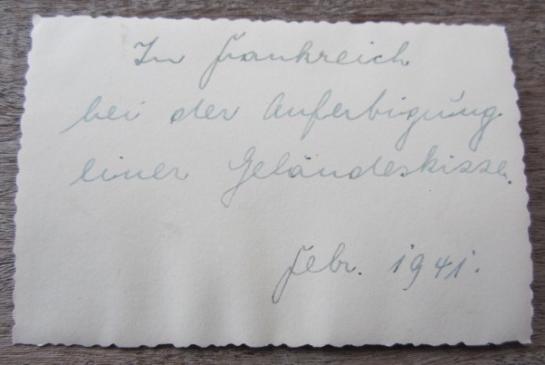 In Frankreich
bei der Anfertigung
einer Geländeskizze.
Febr. 1941.